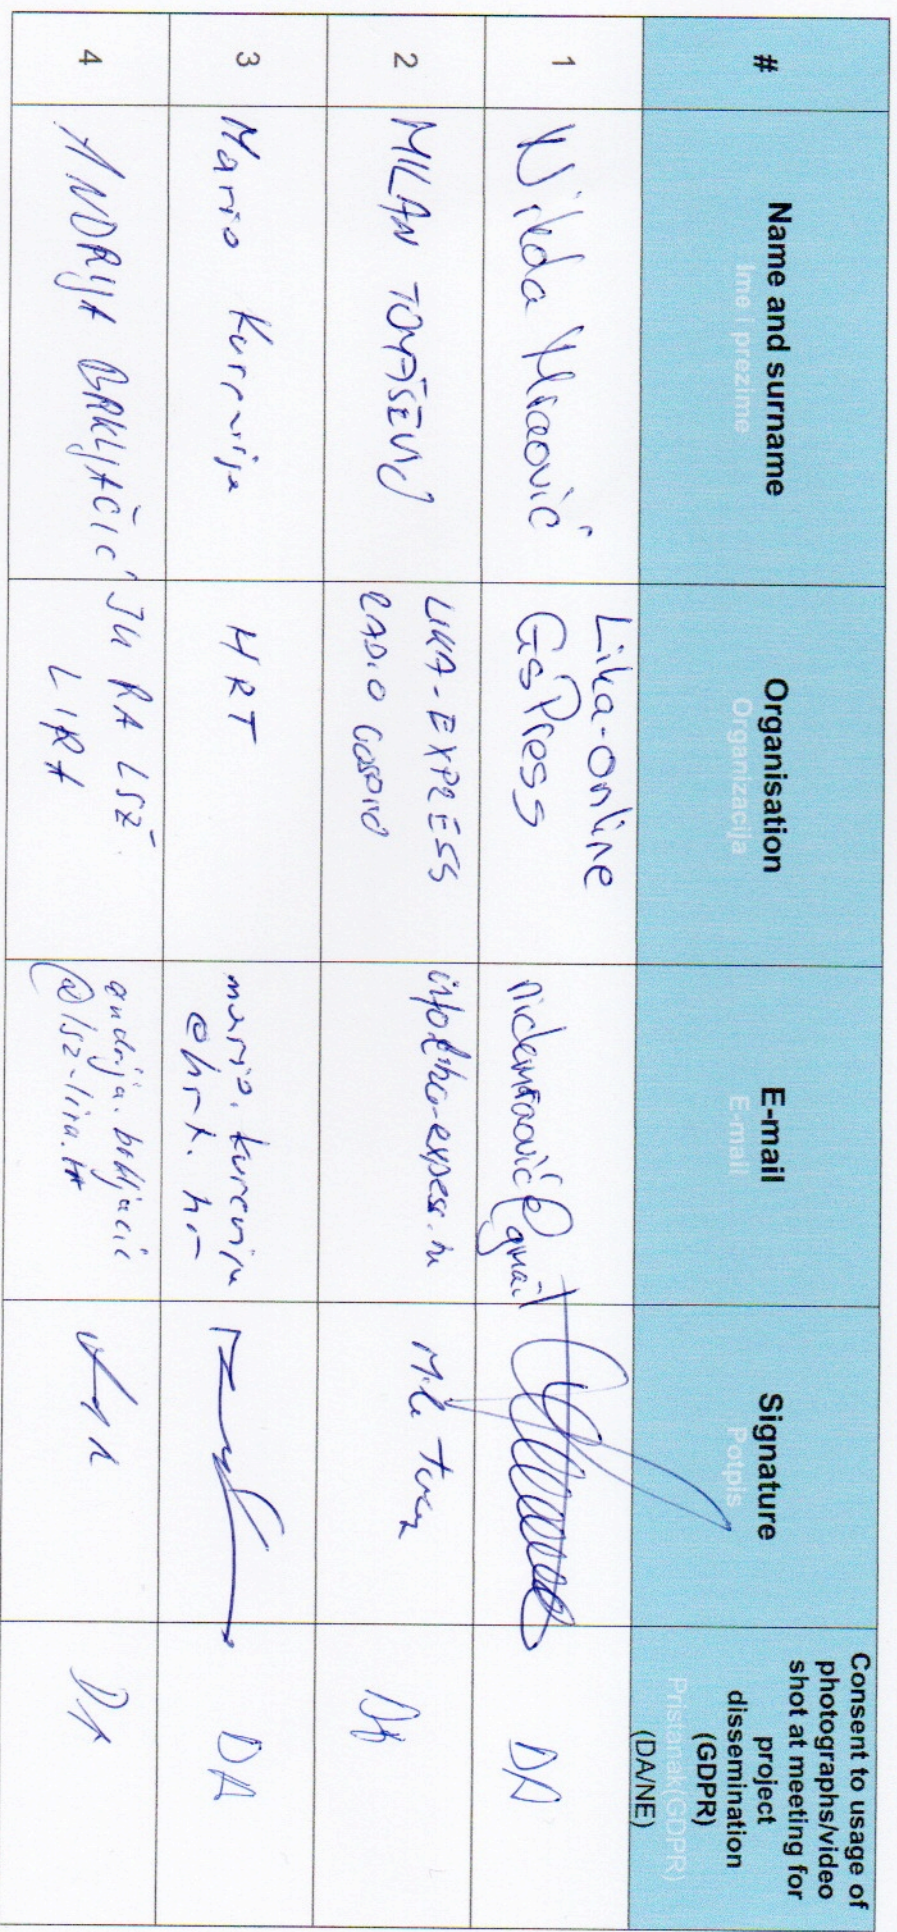 #
Name and surname
Ime i prezime
Organisation
Organizacija
E-mail
E-mail
Signature
Potpis
Consent to usage of
photographs/video
shot at meeting for
project
dissemination
(GDPR)
Pristanak(GDPR)
(DA/NE)
1
Lika-online
GsPress
DA
2
MILAN TOMAŠEVIĆ
LIKA-EXPRESS
RADIO GOSPIĆ
DA
3
Mario
HRT
@hrt.hr
DA
4
ANDRIJA BRKLJAČIĆ
JU RA LSŽ
LIRA
andrija.brkljacic
@lsz-lira.hr
DA